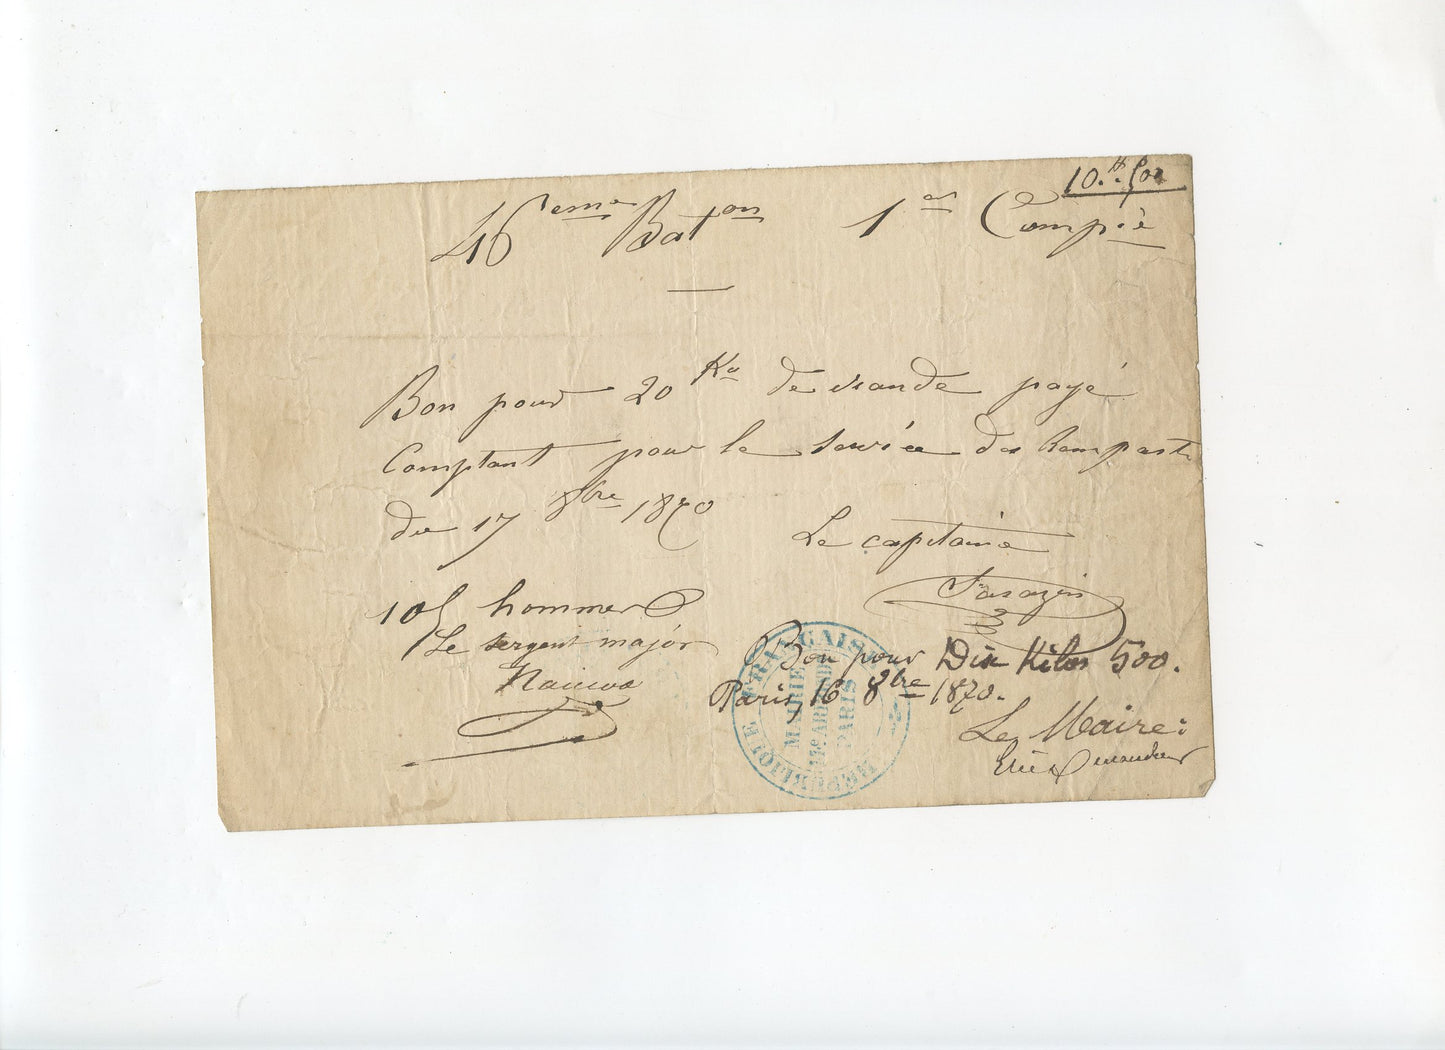 10.k. 500
46eme Baton 1er Compie
Bon pour 20 Ko de viande payé
Comptant pour le service des Remparts
du 17 8bre 1870
Le capitaine
Sarazin
105 hommes
Le sergent major
Bon pour Dix Kilos 500.
Paris, 16 8bre 1870.
Le Maire:
RÉPUBLIQUE FRANÇAISE
MAIRIE
ARRt DE
PARIS